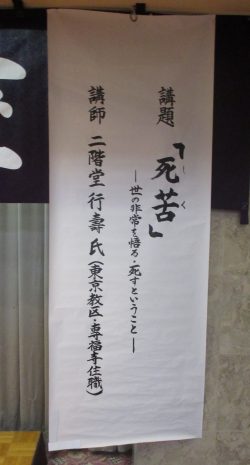 講題 「死苦」
しく
―世の非常を悟る・死すということ―
講師 二階堂 行壽 氏(東京教区・専福寺住職)